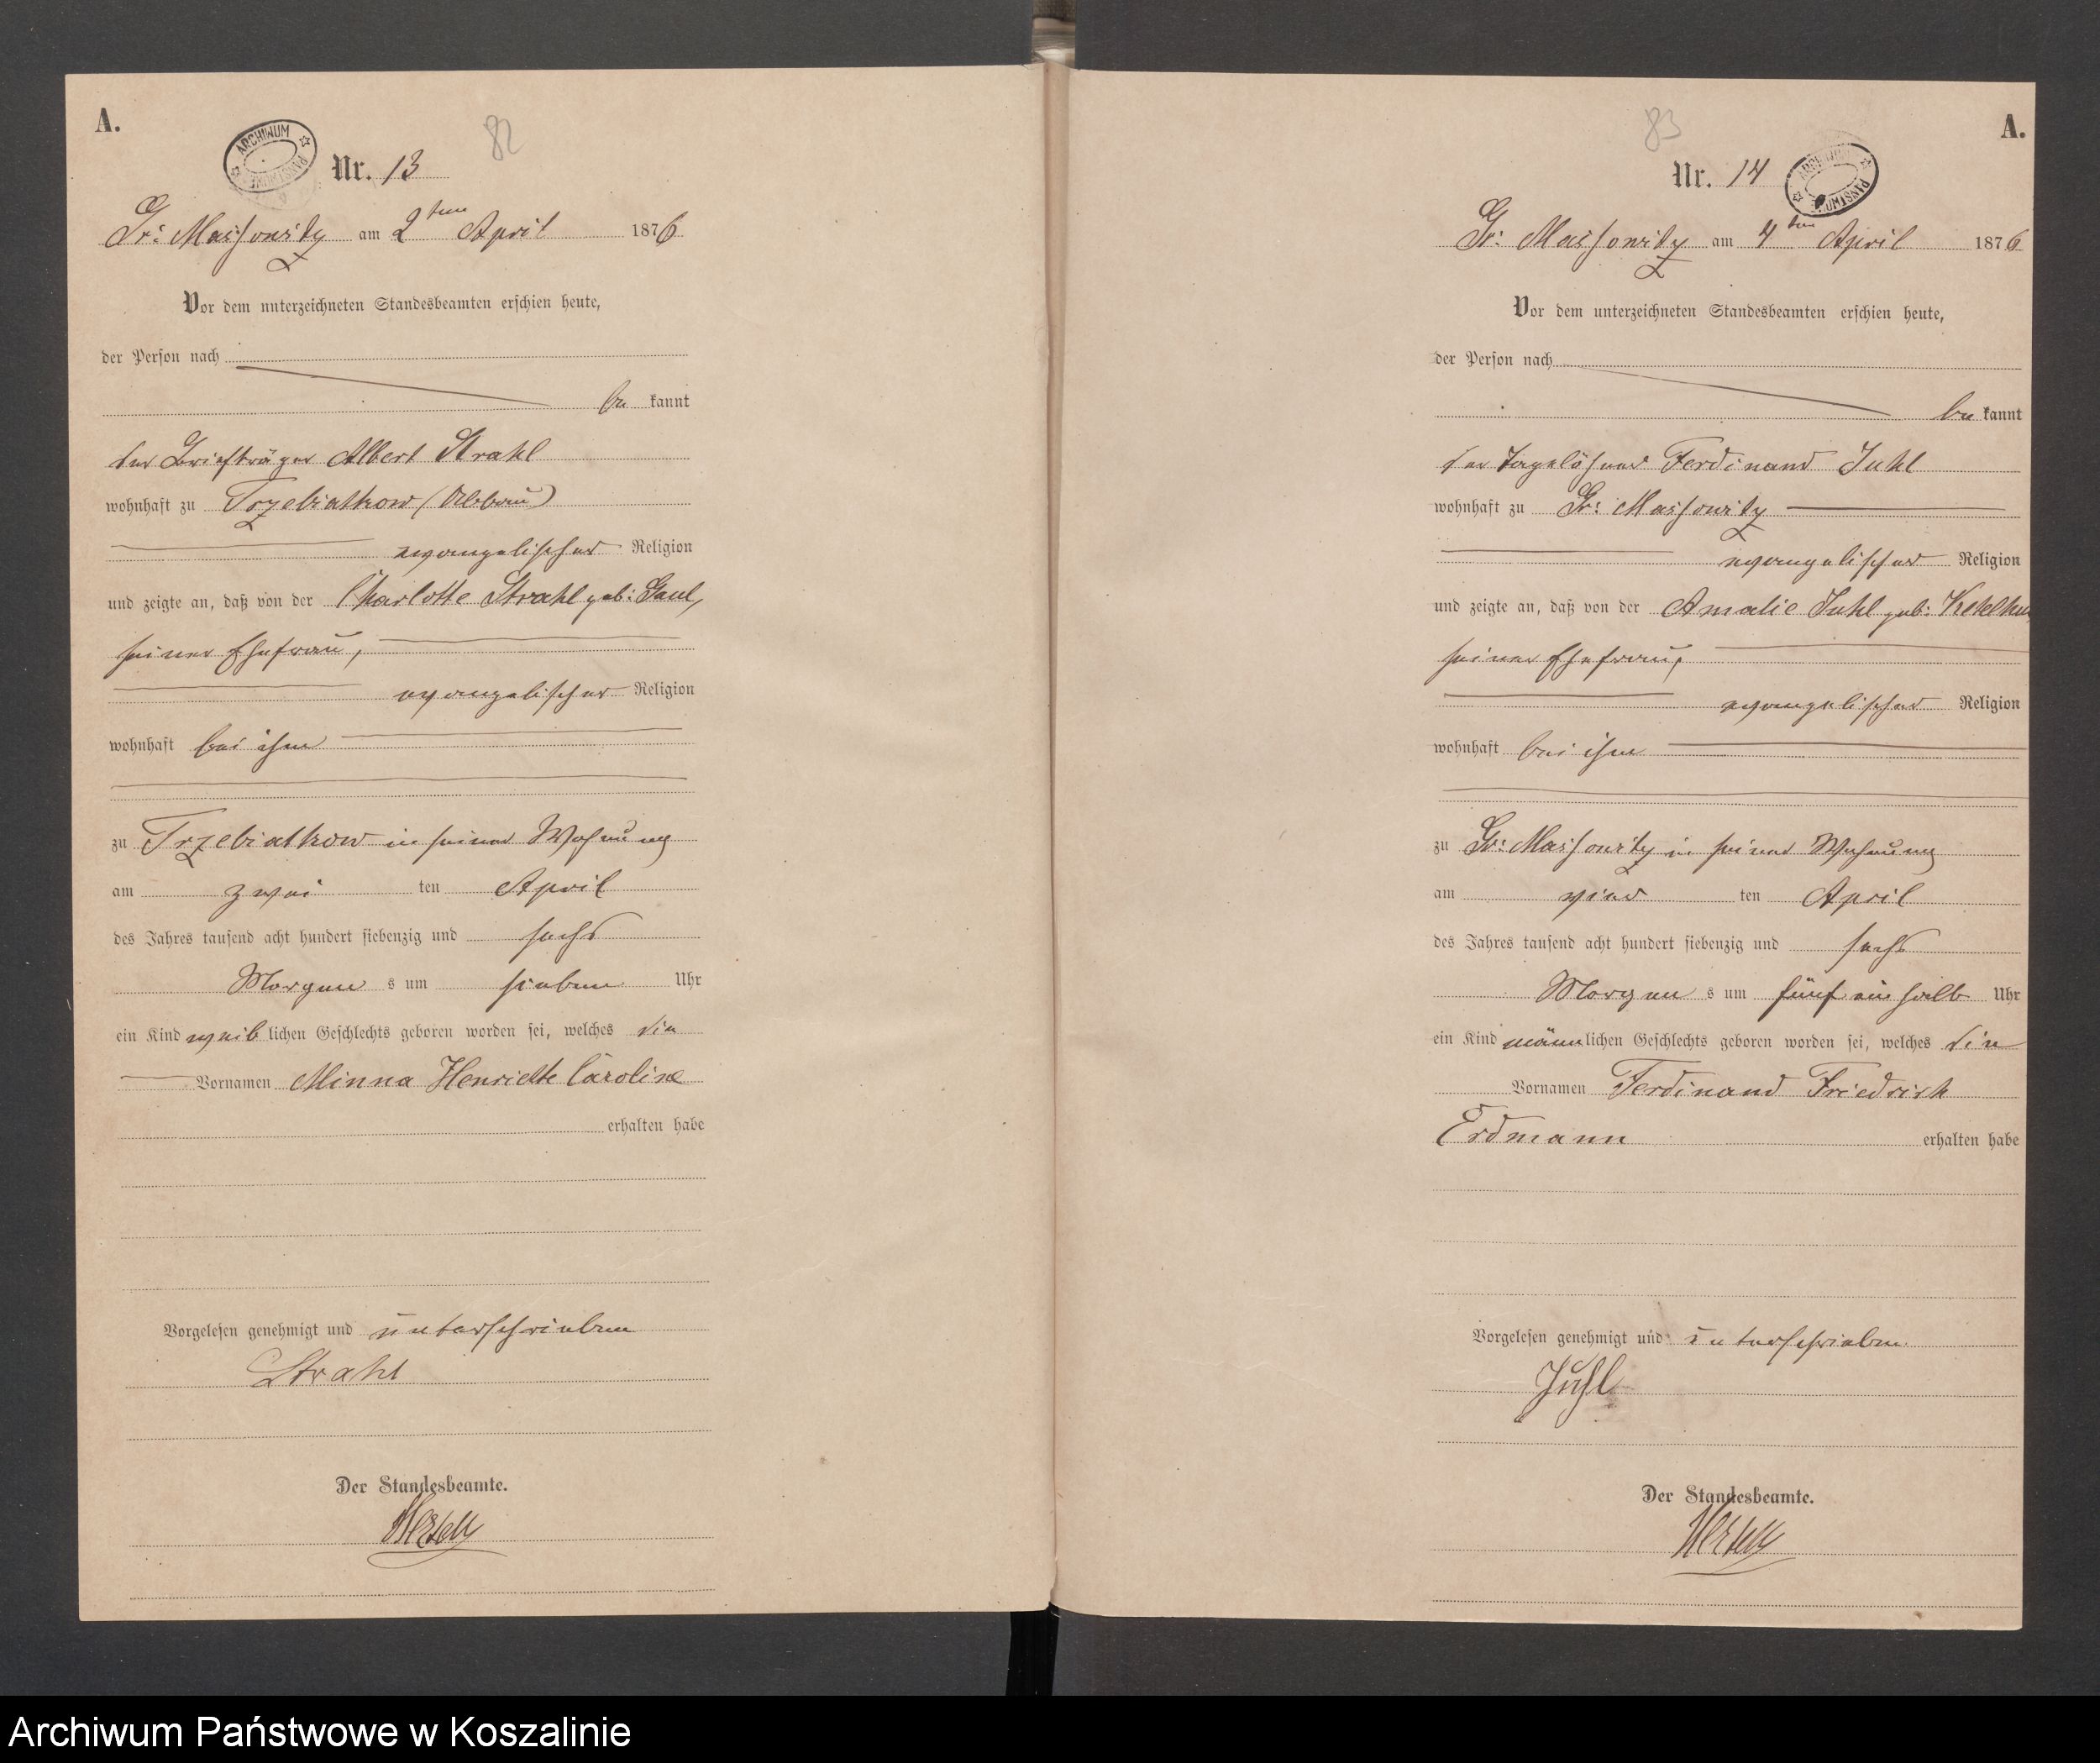 A.
82
ARCHIWUM PAŃSTWOWE
Nr. 13
Gr: Massowitz am 2ten April 1876
Vor dem unterzeichneten Standesbeamten erschien heute,
der Person nach
be kannt
der Briefträger Albert Strahl
wohnhaft zu Trzebiatkow (Abbau)
evangelischer Religion
und zeigte an, daß von der Charlotte Strahl geb: Gaul,
seiner Ehefrau,
evangelischer Religion
wohnhaft bei ihm
zu Trzebiatkow in seiner Wohnung
am zwei ten April
des Jahres tausend acht hundert siebenzig und sechs
Morgen s um sieben Uhr
ein Kind weib lichen Geschlechts geboren worden sei, welches die
Vornamen Minna Henriette Caroline
erhalten habe
Vorgelesen genehmigt und unterschrieben
Strahl
Der Standesbeamte.
A.
83
Nr. 14
ARCHIWUM PAŃSTWOWE
Gr: Massowitz am 4ten April 1876
Vor dem unterzeichneten Standesbeamten erschien heute,
der Person nach
be kannt
der Tagelöhner Ferdinand Juhl
wohnhaft zu Gr: Massowitz
evangelischer Religion
und zeigte an, daß von der Amalie Juhl geb:
seiner Ehefrau,
evangelischer Religion
wohnhaft bei ihm
zu Gr: Massowitz in seiner Wohnung
am vier ten April
des Jahres tausend acht hundert siebenzig und sechs
Morgen s um fünf ein halb Uhr
ein Kind männ lichen Geschlechts geboren worden sei, welches die
Vornamen Ferdinand Friedrich
Erdmann erhalten habe
Vorgelesen genehmigt und unterschrieben
Juhl
Der Standesbeamte.
Archiwum Państwowe w Koszalinie